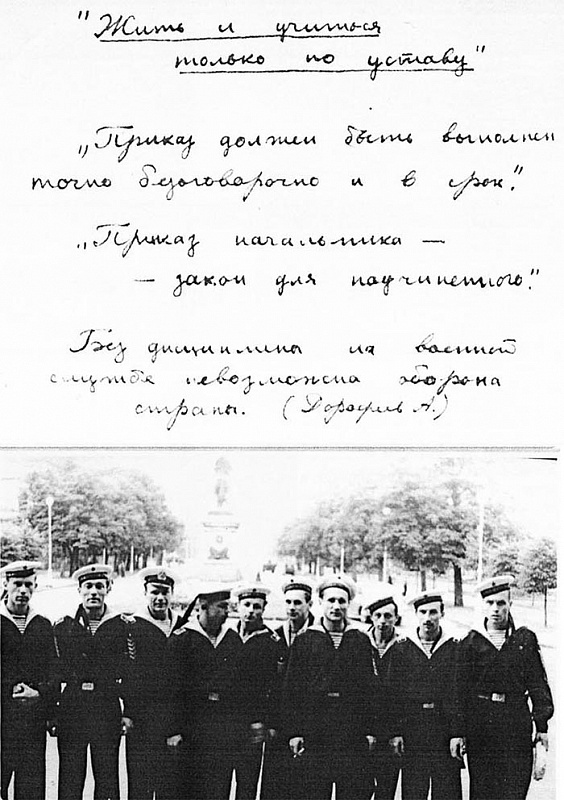 "Жить и учиться
только по уставу"
„Приказ должен быть выполнен
точно безоговорочно и в срок."
„Приказ начальника —
— закон для подчиненного."
Без дисциплины на военной
службе невозможна оборона
страны. (Дорофеев А.)